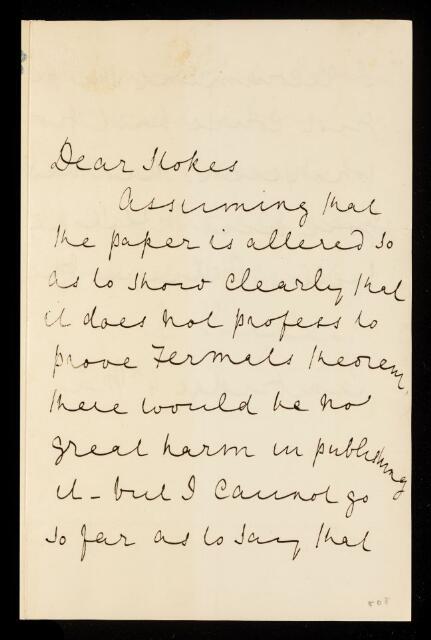 Dear Stokes
Assuming that
the paper is altered so
as to show clearly that
it does not profess to
prove Fermats theorem,
there would be no
great harm in publishing
it - but I cannot go
so far as to say that
508